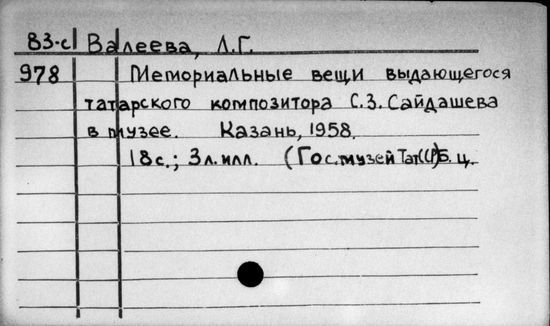 83-с Валеева, Л.Г.
978 Мемориальные вещи выдающегося
татарского композитора С.З. Сайдашева
в музее. Казань, 1958.
18с.; 3л. илл. (Гос. музей ТатССР) Б.ц.